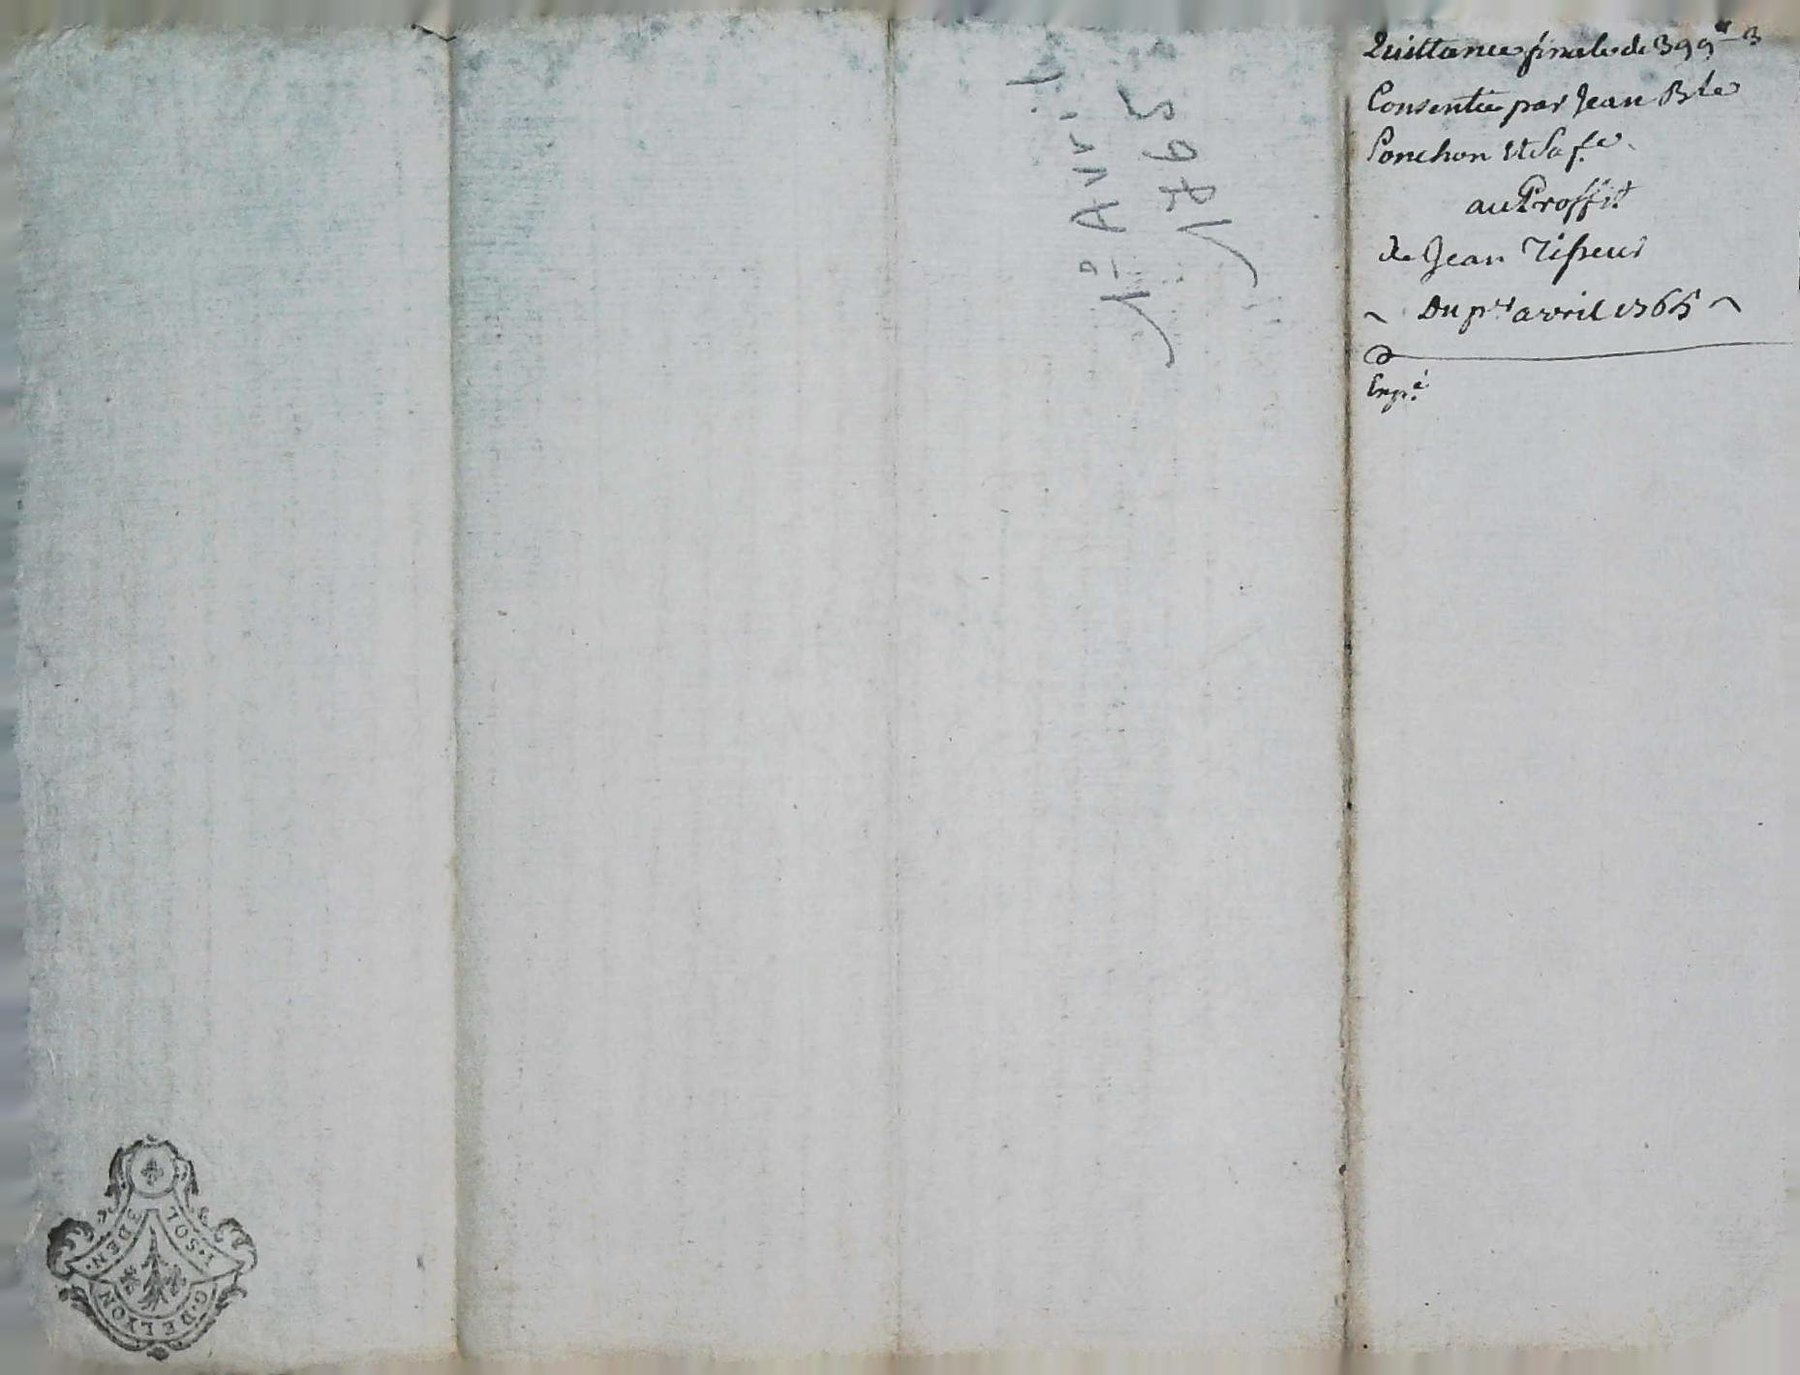 Quittance finale de 399
Consentie par Jean Bte
Ponchon et sa fe
au Proffit
de Jean Tisseur
Du pr avril 1765
Expé
1765
1º Avril
1·SOL
3 DEN·
G·DE LYON